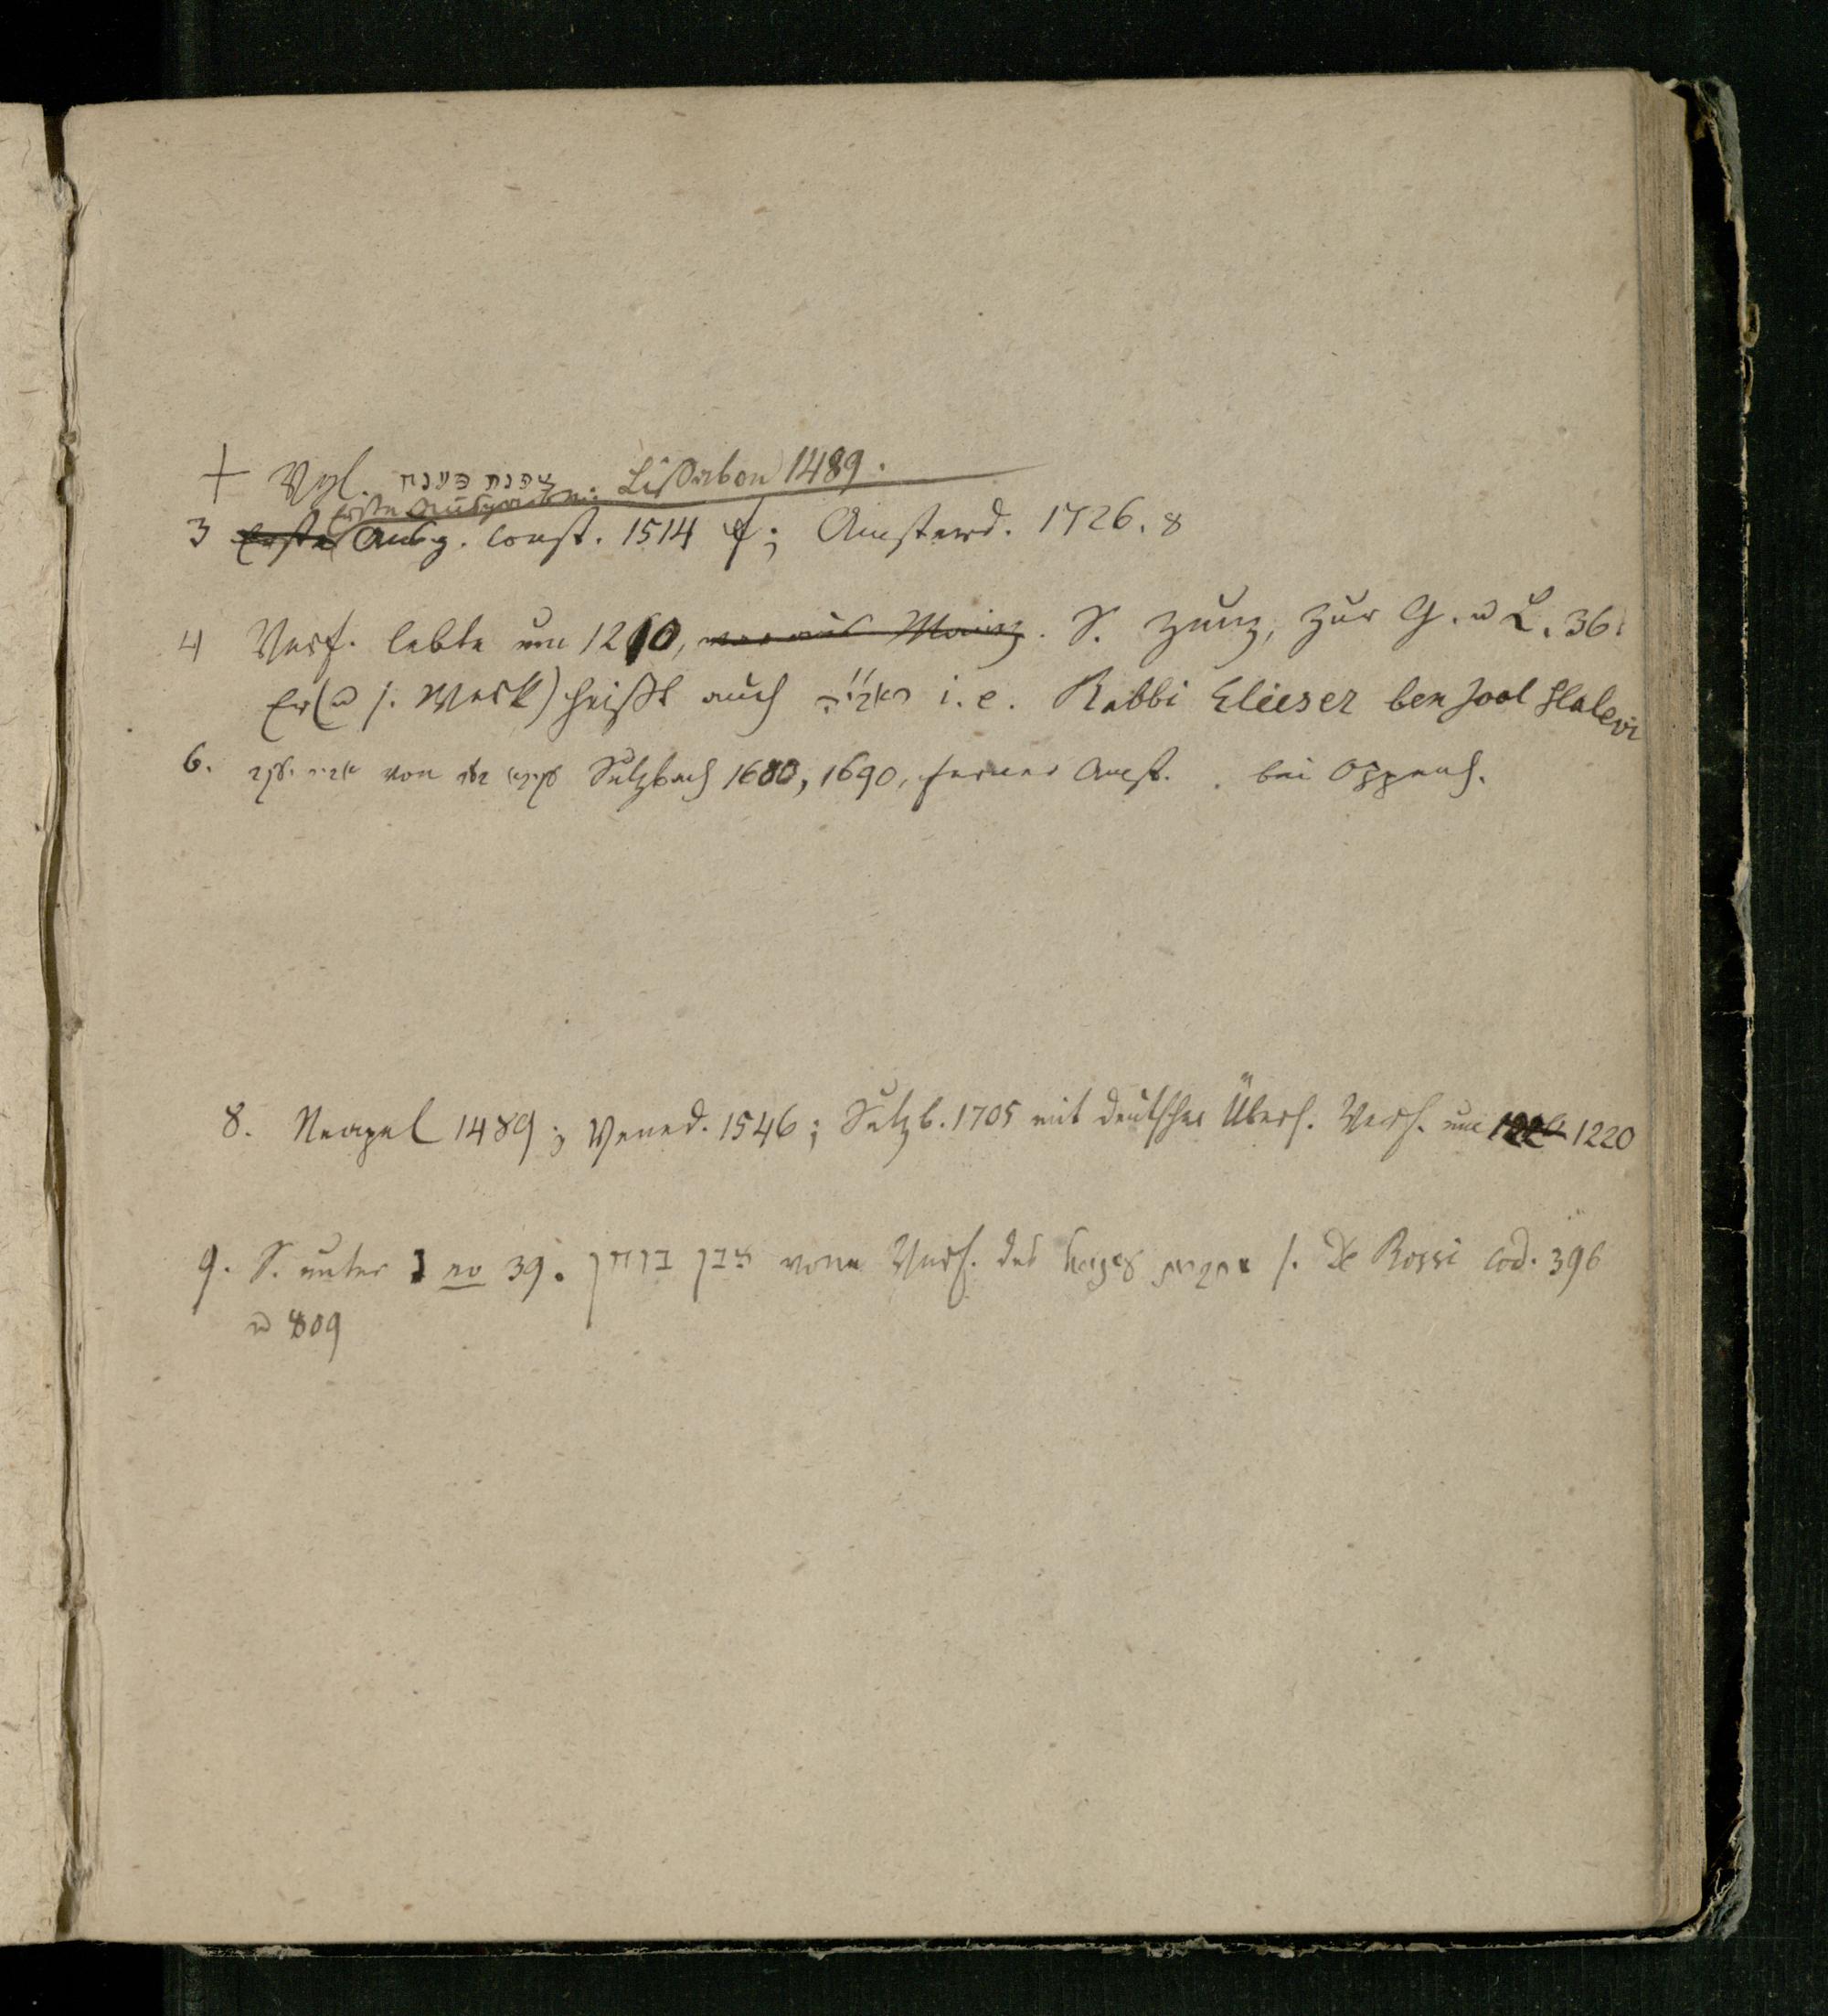 + Vgl. צפנת פענח
Erste Ausgabe: Lissabon 1489.
3 Erste Ausg. Const. 1514 f; Amsterd. 1726. 8
4 Verf. lebte um 1210, war aus Mainz. S. Zunz, zur G. u L. 36.
Er (u s. Werk) heißt auch ראבי״ה i. e. Rabbi Elieser ben Joel Halevi
6. von Sulzbach 1680, 1690, ferner Amst. . bei Oppenh.
8. Neapel 1489; Vened. 1546; Sulzb. 1705 mit deutscher Übers. Verf. um 1220
9. S. unter נ no 39. אבן בוחן vom Verf. des s. De Rossi cod. 396
u 809